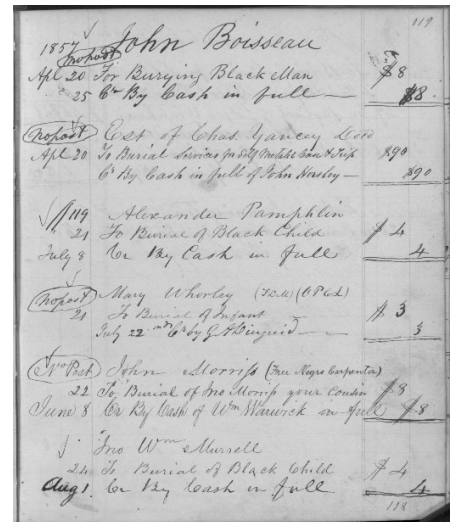 119
1857 John Boisseau
no post
Apl 20 For Burying Black Man $8
" 25 Cr By Cash in full $8
no post Est of Chas. Yancey Decd
Apl 20 To Burial Services for Self Metalic Case & Trip $90
Cr By Cash in full of John Horsley $90
119 Alexander Pamphlin
21 To Burial of Black Child $4
July 8 Cr By Cash in full 4
no post Mary Whorley (F.C.M) (O P G L)
21 To Burial of Infant $3
July 22 Cr by G A Diuguid 3
No Post John Morriss (Free Negro Carpenter)
22 To Burial of Jno Morriss your Cousin $8
June 8 Cr By Cash of Wm Warwick in full $8
Jno Wm Murrell
24 To Burial of Black Child $4
Aug 1. Cr By Cash in full 4
118